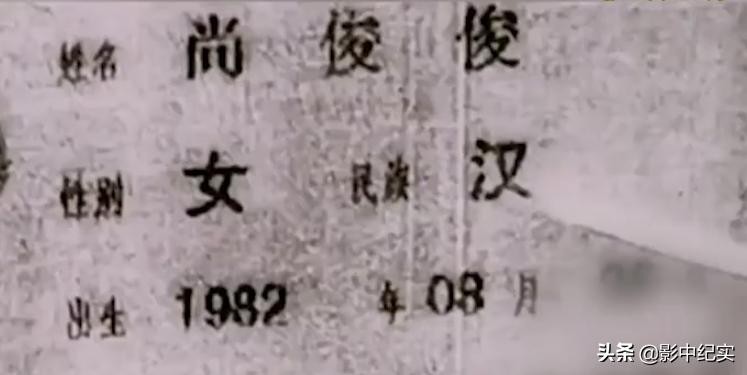 姓名 尚俊俊
性别 女 民族 汉
出生 1982 年 08 月
头条 @影中纪实